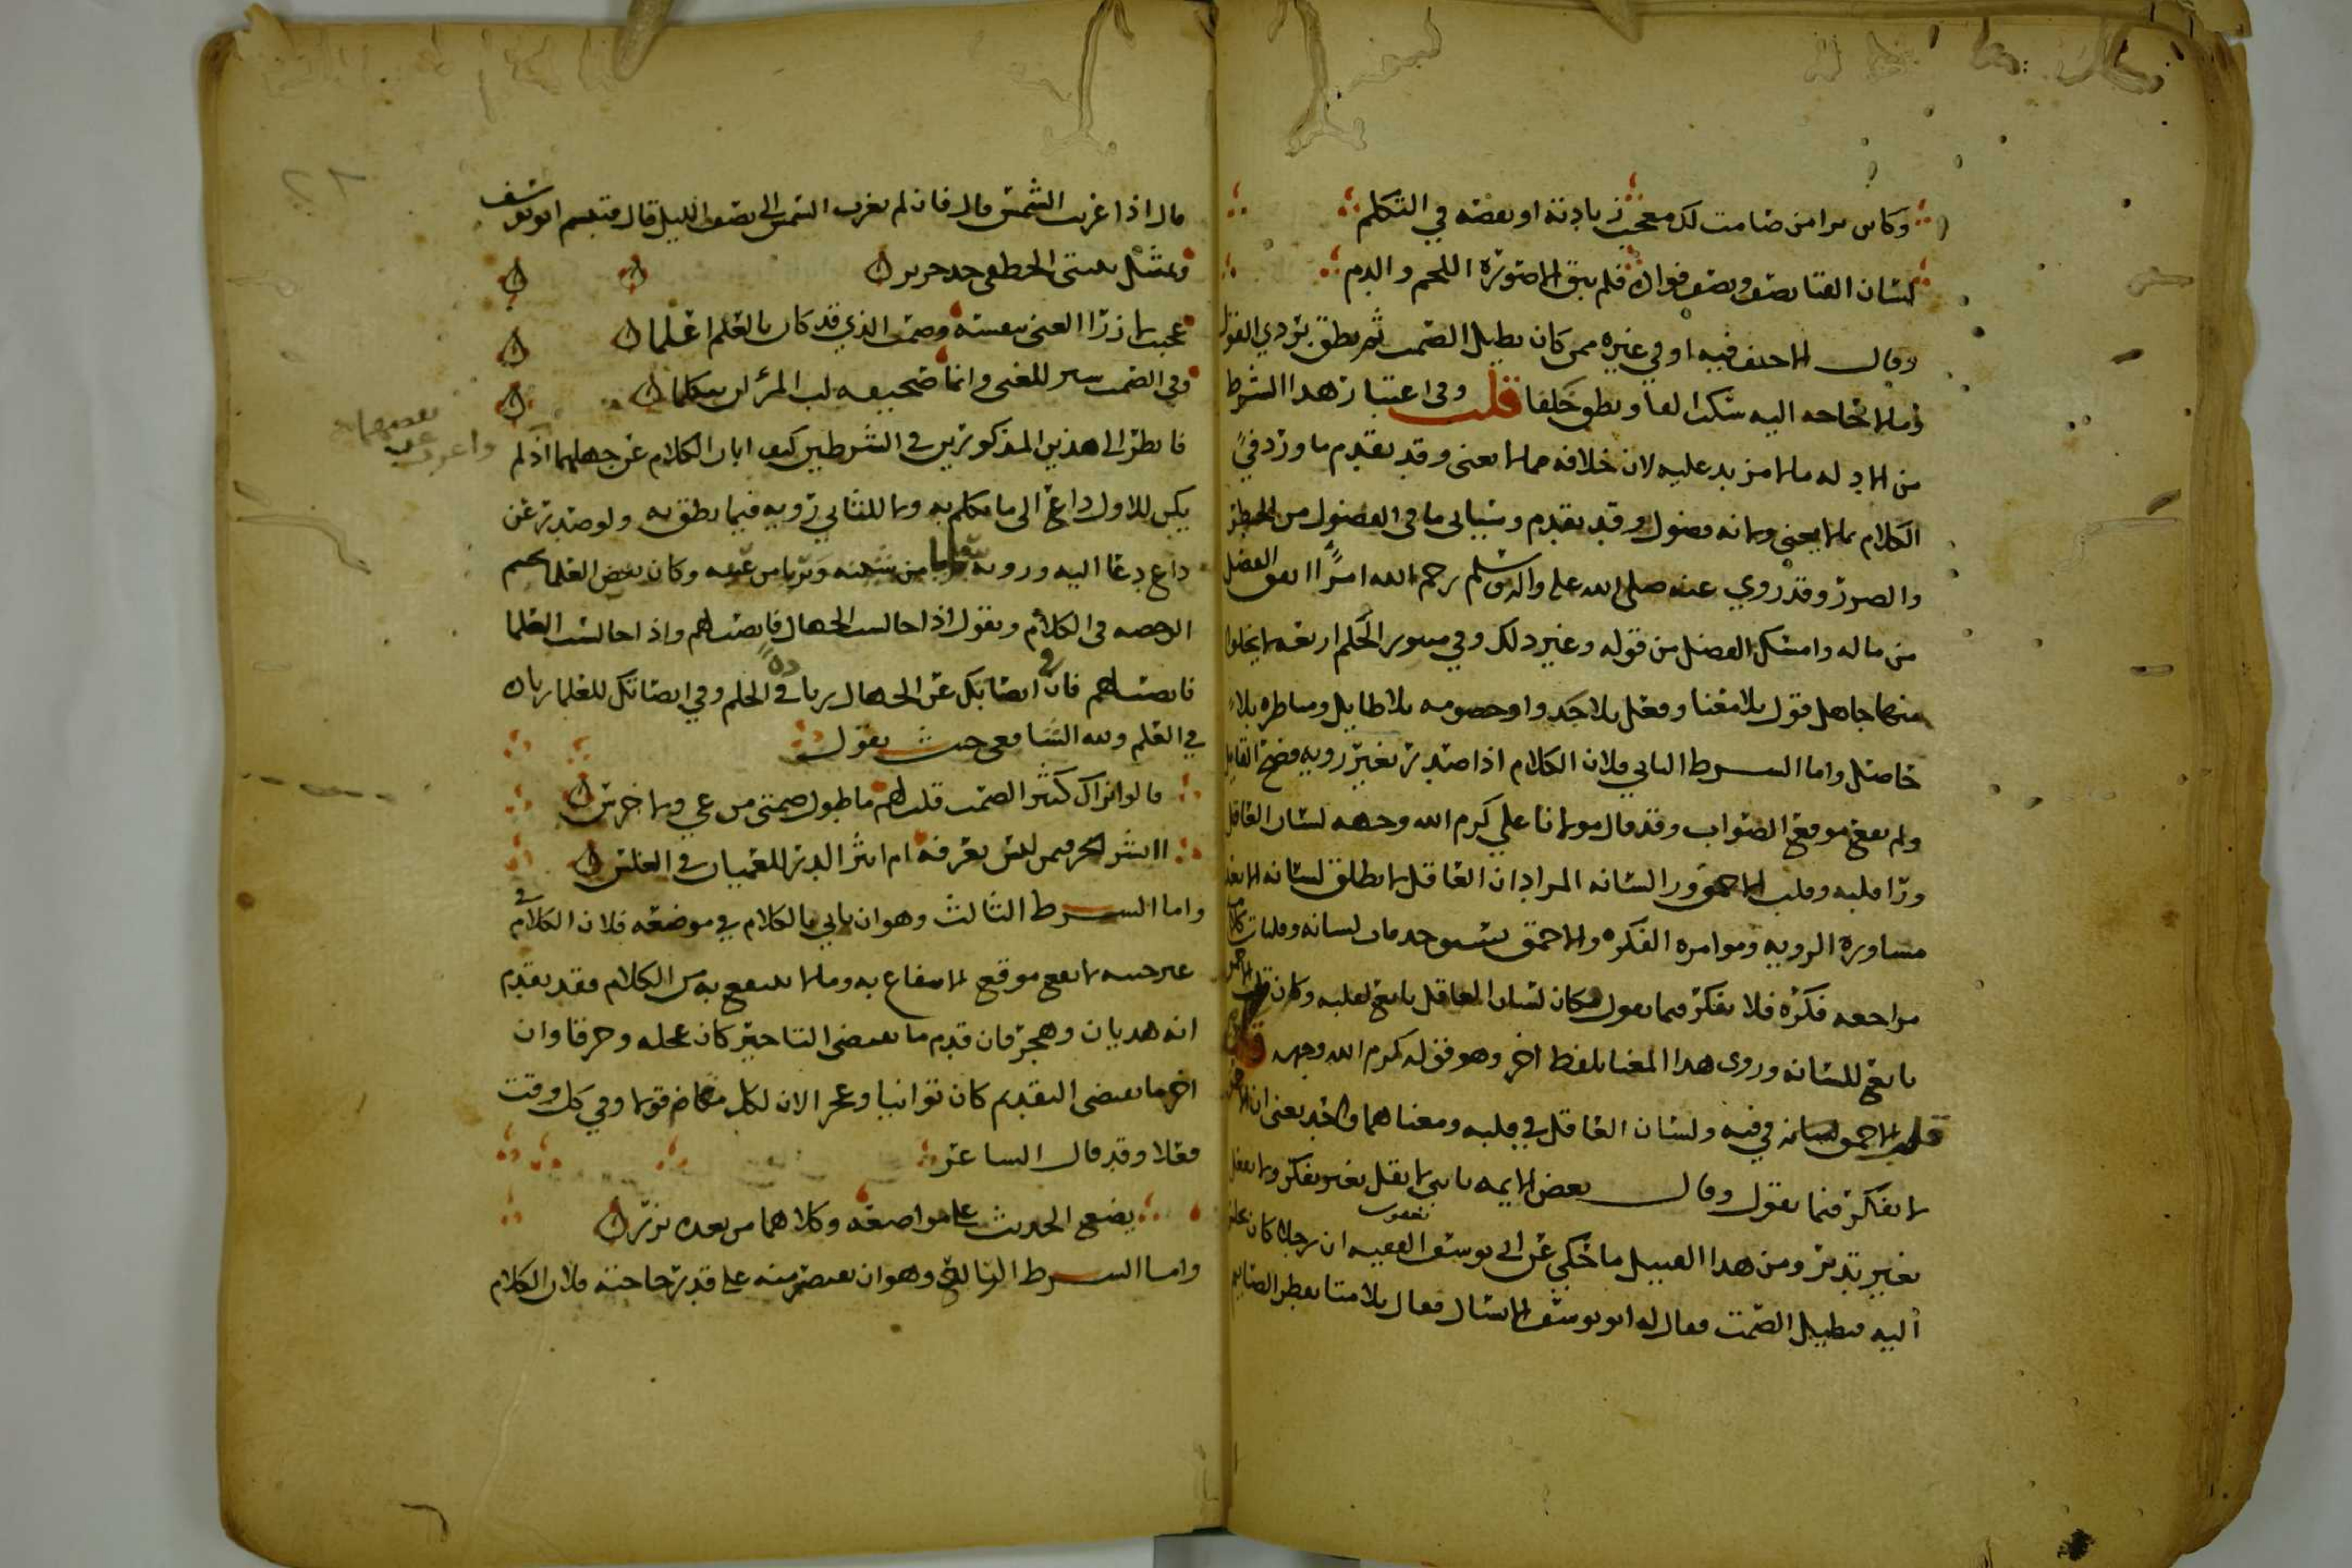 وكاين ترا من صامت لك معجب زيادته او نقصه في التكلم
لسان الفتا نصف ونصف فواده فلم يبق الا صورة اللحم والدم
وقال الاحنف فيه او في غيره ممن كان يطيل الصمت ثم نطق بردي القول
وما لا تحاجه اليه سكت الفا ونطق خلفا قلت وفي اعتبار هذا الشرط
من الادله ما لا مزيد عليه لان خلافه مما لا يعني وقد تقدم ما ورد في
الكلام بما لا يعني ولانه فضول وقد تقدم وسياتي ما في الفضول من الخطر
والضرر وقد روي عنه صلى الله عليه واله وسلم رحم الله امرًا انفق الفضل
من ماله وامسك الفضل من قوله وغير ذلك وفي منثور الحكم اربعه لا يخلوا
منها جاهل قول بلا معنا وفعل بلا جدوا وخصومه بلا طايل ومناظره بلا
حاصل واما الشرط الثاني فلان الكلام اذا صدر بغير رويه فضح القايل
ولم يقع موقع الصواب وقد قال مولانا علي كرم الله وجهه لسان العاقل
ورا قلبه وقلب الاحمق ورا لسانه المراد ان العاقل لا يطلق لسانه الا بعد
مشاورة الرويه وموامرة الفكره والاحمق تسبق حذفات لسانه وفلتات كلامه
مراجعه فكره فلا يفكر فيما يقول فكان لسان العاقل تابع لقلبه وكان قلب الاحمق
تابع للسانه وروى هذا المعنا بلفظ اخر وهو قوله كرم الله وجهه
قلب الاحمق في فيه ولسان العاقل في قلبه ومعناهما واحد يعني ان الاحمق
لا يفكر فيما يقول وقال بعض الايمه يا بني لا تقل بغير تفكر ولا تعمل
بغير تدبر ومن هذا القبيل ما حكي عن ابي يوسف يعقوب الفقيه ان رجلا كان يجلس
اليه فيطيل الصمت فقال له ابو يوسف الا تسال فقال بلا متا يفطر الصايم
قال اذا غربت الشمس قال فان لم تغرب الشمس الى نصف الليل قال فتبسم ابو يوسف
وتمثل ببيتي الخطفى جد جرير
عجبت لازرا العي بنفسه وصمت الذي قد كان بالعلم اعلما
وفي الصمت ستر للعي وانما صحيفه لب المرء ان يتكلما
فانظر الى هذين المذكورين في الشرطين كيف ابان الكلام عن جهلهما اذ لم
يكن للاول داع الى ما تكلم به ولا للثاني رويه فيما نطق به ولو صدر عن
داع دعا اليه ورويه من شينه وبريا من عيبه وكان بعض العلما
الرخصه في الكلام ويقول اذا جالست الجهال فانصت لهم واذا جالست العلما
فانصت لهم فان في انصاتك عن الجهال زيادة في الحلم وفي انصاتك للعلما زياده
في العلم ولله الشافعي حيث يقول
قالوا نراك كثير الصمت قلت لهم ما طول صمتي من عي ولا خرس
اانشر البز فيمن ليس يعرفه ام انثر الدر للعميان في الغلس
واما الشرط الثالث وهو ان ياتي بالكلام في موضعه فلان الكلام في
غير حينه لا يقع موقع الانتفاع به وما لا ينتفع به من الكلام فقد تقدم
انه هذيان وهجر فان قدم ما يقتضي التاخير كان عجله وخرقا وان
اخر ما يقتضي التقديم كان توانيا وعجزا لان لكل مقام قولا وفي كل وقت
فعلا وقد قال الشاعر
يضع الحديث على مواضعه وكلامها من بعده نزر
واما الشرط الرابع وهو ان يقتصر منه على قدر حاجته فلان الكلام